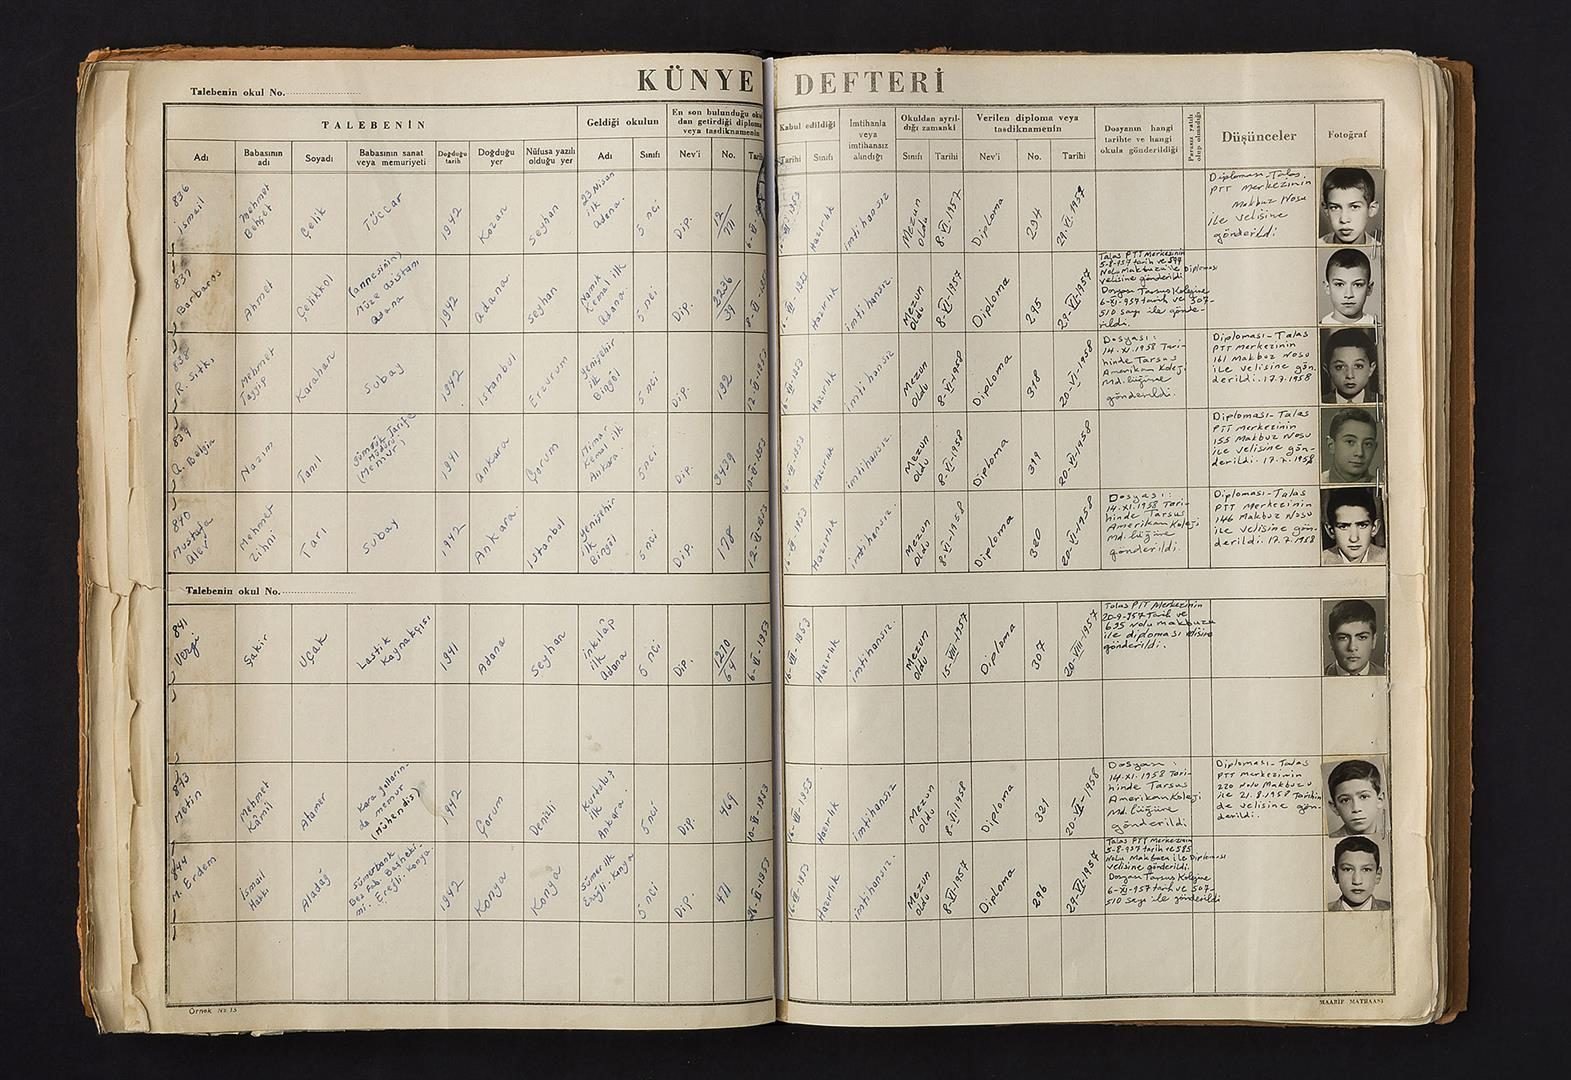 KÜNYE DEFTERİ
Talebenin okul No.
TALEBENİN
Geldiği okulun
En son bulunduğu okuldan getirdiği diploma veya tasdiknamenin
Kabul edildiği
İmtihanla veya imtihansız alındığı
Okuldan ayrıldığı zamanki
Verilen diploma veya tasdiknamenin
Dosyanın hangi tarihte ve hangi okula gönderildiği
Parasız yatılı olup olmadığı
Düşünceler
Fotoğraf
Adı
Babasının adı
Soyadı
Babasının sanat veya memuriyeti
Doğduğu tarih
Doğduğu yer
Nüfusa yazılı olduğu yer
Adı
Sınıfı
Nev'i
No.
Tarihi
Tarihi
Sınıfı
Sınıfı
Tarihi
Nev'i
No.
Tarihi
836 İsmail
Mehmet Behçet
Çelik
Tüccar
1942
Kozan
Seyhan
23 Nisan ilk Adana.
5 nci
Dip.
12/771
Hazırlık
imtihansız
Mezun oldu
8-VI-1957
Diploma
294
29-VI-1957
Diploması-Talas.
PTT Merkezinin
Makbuz Nosu
ile velisine
gönderildi
837 Barbaros
Ahmet
Çetikkol
(annesinin) müze asistanı Adana
1942
Adana
Seyhan
Namık Kemal ilk Adana.
5 nci
Dip.
2236/39
Hazırlık
imtihansız.
Mezun oldu
8-VI-1957
Diploma
295
29-VI-1957
Talas PTT Merkezinin
5-8-957 tarih ve 594
Nolu Makbuzu ile Diploması
velisine gönderildi
Dosyası Tarsus Kolejine
6-XI-957 tarih ve 507-
510 sayı ile gönde-
rildi.
838 R. Sıtkı
Mehmet Tayyip
Karahan
Subay
1942
İstanbul
Erzurum
Yenişehir ilk Bingöl
5 nci
Dip.
192
12-VI-1953
Hazırlık
imtihansız
Mezun oldu
8-VI-1958
Diploma
318
20-VI-1958
Dosyası:
14.XI.1958 Tari-
hinde Tarsus
Amerikan Koleji
Md.lüğüne
gönderildi.
Diploması-Talas
PTT Merkezinin
161 Makbuz Nosu
ile velisine gön-
derildi. 17.7.1958
839 A. Bilgin
Nazım
Tanıl
Gümrük Tarife Müdürü (Memur)
1941
Ankara
Çorum
Mimar Kemal ilk Ankara.
5 nci
Dip.
3439
10-VI-1953
Hazırlık
imtihansız.
Mezun oldu
8-VI-1958
Diploma
319
20-VI-1958
Diploması-Talas
PTT Merkezinin
155 Makbuz Nosu
ile velisine gön-
derildi. 17.7.1958
840 Mustafa Alev
Mehmet Zihni
Tarı
Subay
1942
Ankara
İstanbul
Yenişehir ilk Bingöl
5 nci
Dip.
178
12-VI-1953
Hazırlık
imtihansız.
Mezun oldu
8-VI-1958
Diploma
320
20-VI-1958
Dosyası:
14.XI.1958 Tari-
hinde Tarsus
Amerikan Koleji
Md.lüğüne
gönderildi.
Diploması-Talas
PTT Merkezinin
146 Makbuz Nosu
ile velisine gön-
derildi. 17.7.1958
Talebenin okul No.
841 Vergi
Şakir
Uçak
Lastik Kaynakçısı
1941
Adana
Seyhan
İnkılâp ilk Adana
5 nci
Dip.
1270/64
6-VI-1953
Hazırlık
imtihansız.
Mezun oldu
15-VIII-1957
Diploma
307
20-VIII-1957
Talas PTT Merkezinin
20-9-957 Tarih ve
635 nolu makbuzu
ile diploması velisine
gönderildi.
843 Metin
Mehmet Kâmil
Atamer
Kara yollarında memur (Mühendis)
1942
Çorum
Denizli
Kurtuluş ilk Ankara.
5 nci
Dip.
469
10-VI-1953
Hazırlık
imtihansız
Mezun oldu
8-VI-1958
Diploma
321
20-VI-1958
Dosyası:
14.XI.1958 Tari-
hinde Tarsus
Amerikan Koleji
Md.lüğüne
gönderildi
Diploması-Talas
PTT Merkezinin
220 Nolu Makbuzu
ile 21.8.1958 Tarihin
de velisine gön-
derildi.
844 M. Erdem
İsmail Hakkı
Aladağ
Sümerbank Bez Fab. Başheki mi. Ereğli-Konya.
1942
Konya
Konya
Sümer ilk Ereğli-Konya
5 nci
Dip.
471
Hazırlık
imtihansız.
Mezun oldu
8-VI-1957
Diploma
296
29-VI-1957
Talas PTT Merkezinin
5-8-957 tarih ve 585
Nolu Makbuzu ile Diploması
velisine gönderildi.
Dosyası Tarsus Kolejine
6-XI-957 tarih ve 507-
510 sayı ile gönderildi
Örnek No 15
MAARİF MATBAASI